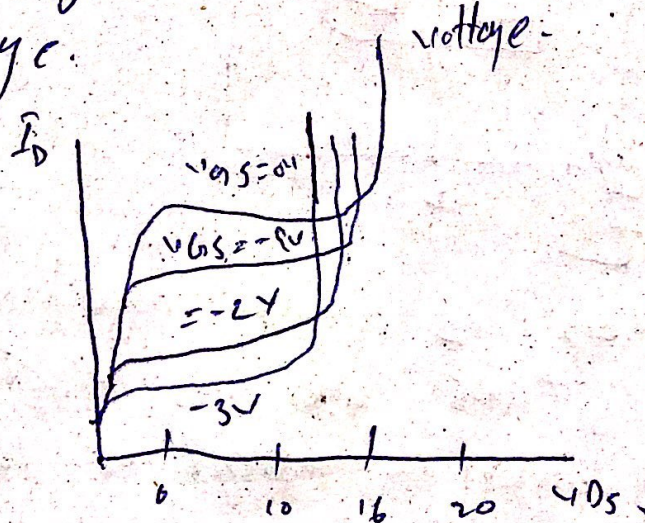 ye.
voltage.
I_D
VGS=0V
VGS=-1V
=-2V
-3V
6 10 16 20 VDS